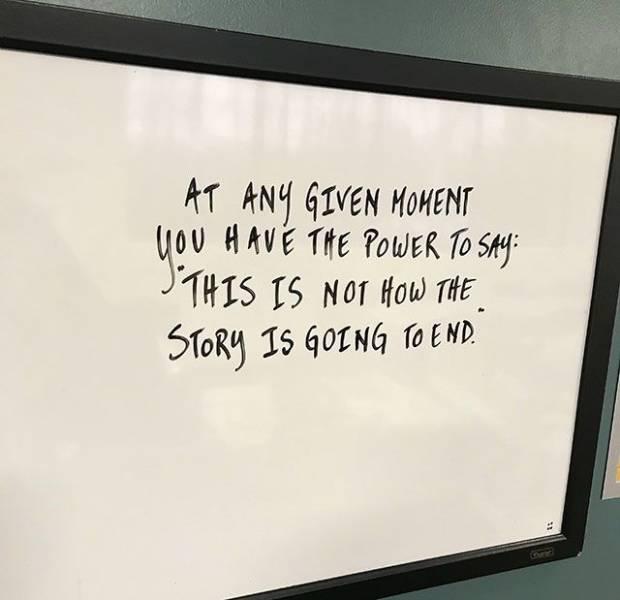 AT ANY GIVEN MOMENT
YOU HAVE THE POWER TO SAY:
"THIS IS NOT HOW THE
STORY IS GOING TO END."